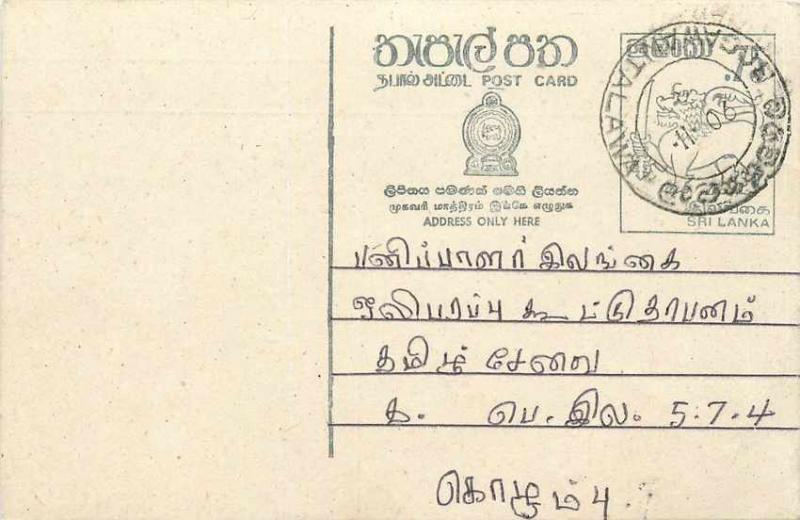 තැපැල් පත
தபால் அட்டை POST CARD
ලිපිනය පමණක් මෙහි ලියන්න
முகவரி மாத்திரம் இங்கே எழுதுக
ADDRESS ONLY HERE
இலங்கை
SRI LANKA
பணிப்பாளர் இலங்கை
ஒலிபரப்பு கூட்டுதாபனம்
தமிழ் சேவை
த. பெ. இல. 5.7.4
கொழும்பு.